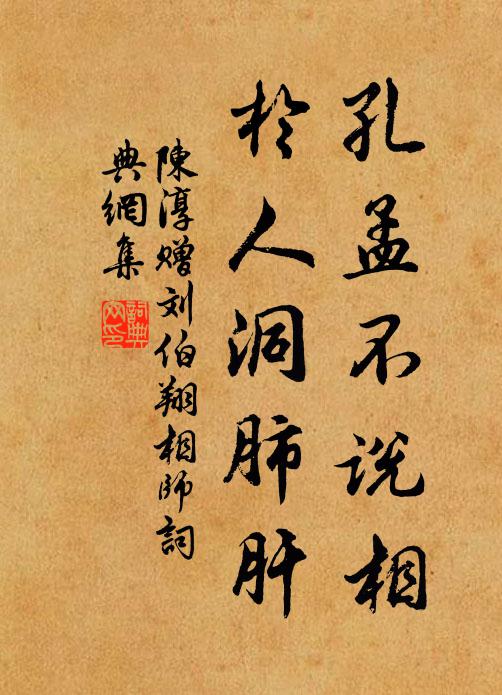 孔孟不说相
於人洞肺肝
陳淳赠刘伯翔相師詞
典網集
詞典网印